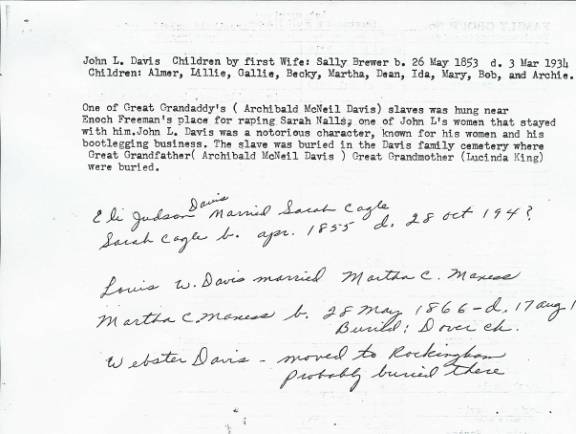 John L. Davis Children by first Wife: Sally Brewer b. 26 May 1853 d. 3 Mar 1934
Children: Almer, Lillie, Gallie, Becky, Martha, Dean, Ida, Mary, Bob, and Archie.
One of Great Grandaddy's ( Archibald McNeil Davis) slaves was hung near
Enoch Freeman's place for raping Sarah Nalls, one of John L's women that stayed
with him.John L. Davis was a notorious character, known for his women and his
bootlegging business. The slave was buried in the Davis family cemetery where
Great Grandfather( Archibald McNeil Davis ) Great Grandmother (Lucinda King)
were buried.
Eli Judson Davis Married Sarah Cagle
Sarah Cagle b. apr. 1855 d. 28 Oct 194?
Louis W. Davis married Martha C. Maness
Martha C. Maness b. 28 May 1866-d. 17 aug 1
Buried: Dover ch.
Webster Davis - moved to Rockingham
Probably buried there